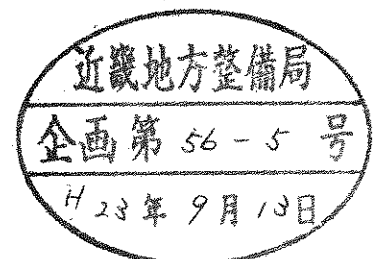 近畿地方整備局
企画第 56-5 号
H 23 年 9 月 13 日